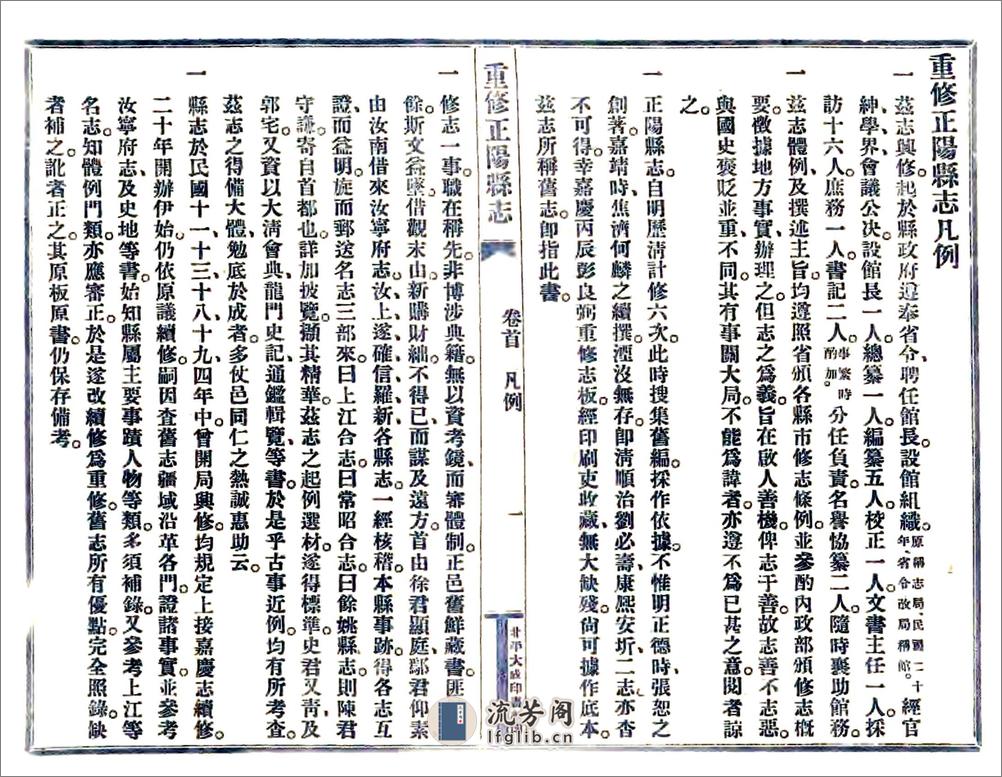 重修正陽縣志凡例
一 茲志興修。起於縣政府遵奉省令、聘任館長。設館組織。原稱志局、民國二十年、省令改局稱館。經官
紳、學界會議公决、設館長一人。總纂一人。編纂五人。校正一人。文書主任一人。採
訪十六人。庶務一人。書記二人。事繁時酌加。分任負責。名譽協纂二人。隨時襄助館務。
一 茲志體例、及撰述主旨、均遵照省頒各縣市修志條例、並參酌內政部頒修志概
要。徵據地方事實辦理之。但志之爲義。旨在啟人善機。俾志于善。故志善不志惡
與國史褒貶並重不同。其有事關大局。不能爲諱者。亦遵不爲已甚之意。閱者諒
之。
一 正陽縣志。自明歷淸計修六次。此時搜集舊編。採作依據。不惟明正德時、張恕之
創著。嘉靖時、焦濟何麟之續撰。湮沒無存。卽淸順治劉必壽康熙安圻二志。亦杳
不可得。幸嘉慶丙辰彭良弼重修志板、經印刷吏收藏、無大缺殘。尙可據作底本。
茲志所稱舊志。卽指此書。
重修正陽縣志
卷首 凡例
一
北平大成印書
一 修志一事。職在稱先。非博涉典籍、無以資考鏡。而審體制。正邑舊鮮藏書。匪
餘。斯文益墜。借觀末由。新購財絀。不得已而謀及遠方。首由徐君顯庭、鄢君仰素
由汝南借來汝寧府志。汝上遂確信羅新各縣志一經核稽。本縣事跡。得各志互
證、而益明。旋而郵送名志三部來。曰上江合志。曰常昭合志。曰餘姚縣志。則陳君
守謙寄自首都也。詳加披覽。擷其精華。茲志之起例選材。遂得標準。史君又靑及
郭宅。又資以大淸會典、龍門史記、通鑑輯覽、等書。於是乎古事近例、均有所考查。
茲志之得備大體。勉底於成者。多仗邑同仁之熱誠惠助云。
一 縣志於民國十一、十三、十八、十九、四年中。曾開局興修。均規定上接嘉慶志續修。
二十年開辦伊始。仍依原議續修。嗣因查舊志疆域沿革各門。證諸事實。並參考
汝寧府志、及史地等書。始知縣屬主要事蹟、人物等類。多須補錄。又參考上江等
名志。知體例門類。亦應審正。於是遂改續修爲重修。舊志所有優點。完全照錄。缺
者補之。訛者正之。其原板原書。仍保存備考。
流芳阁
lfglib.cn